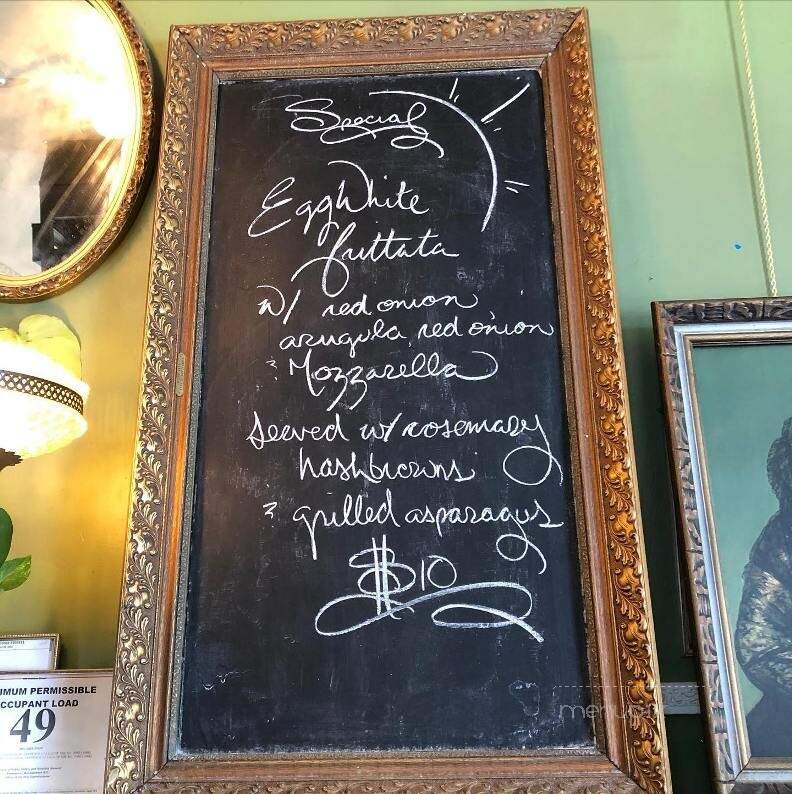 Special
EggWhite
frittata
w/ red onion
arugula, red onion
& Mozzarella
Served w/ rosemary
hashbrowns
& grilled asparagus
$10
IMUM PERMISSIBLE
CCUPANT LOAD
49
menupix